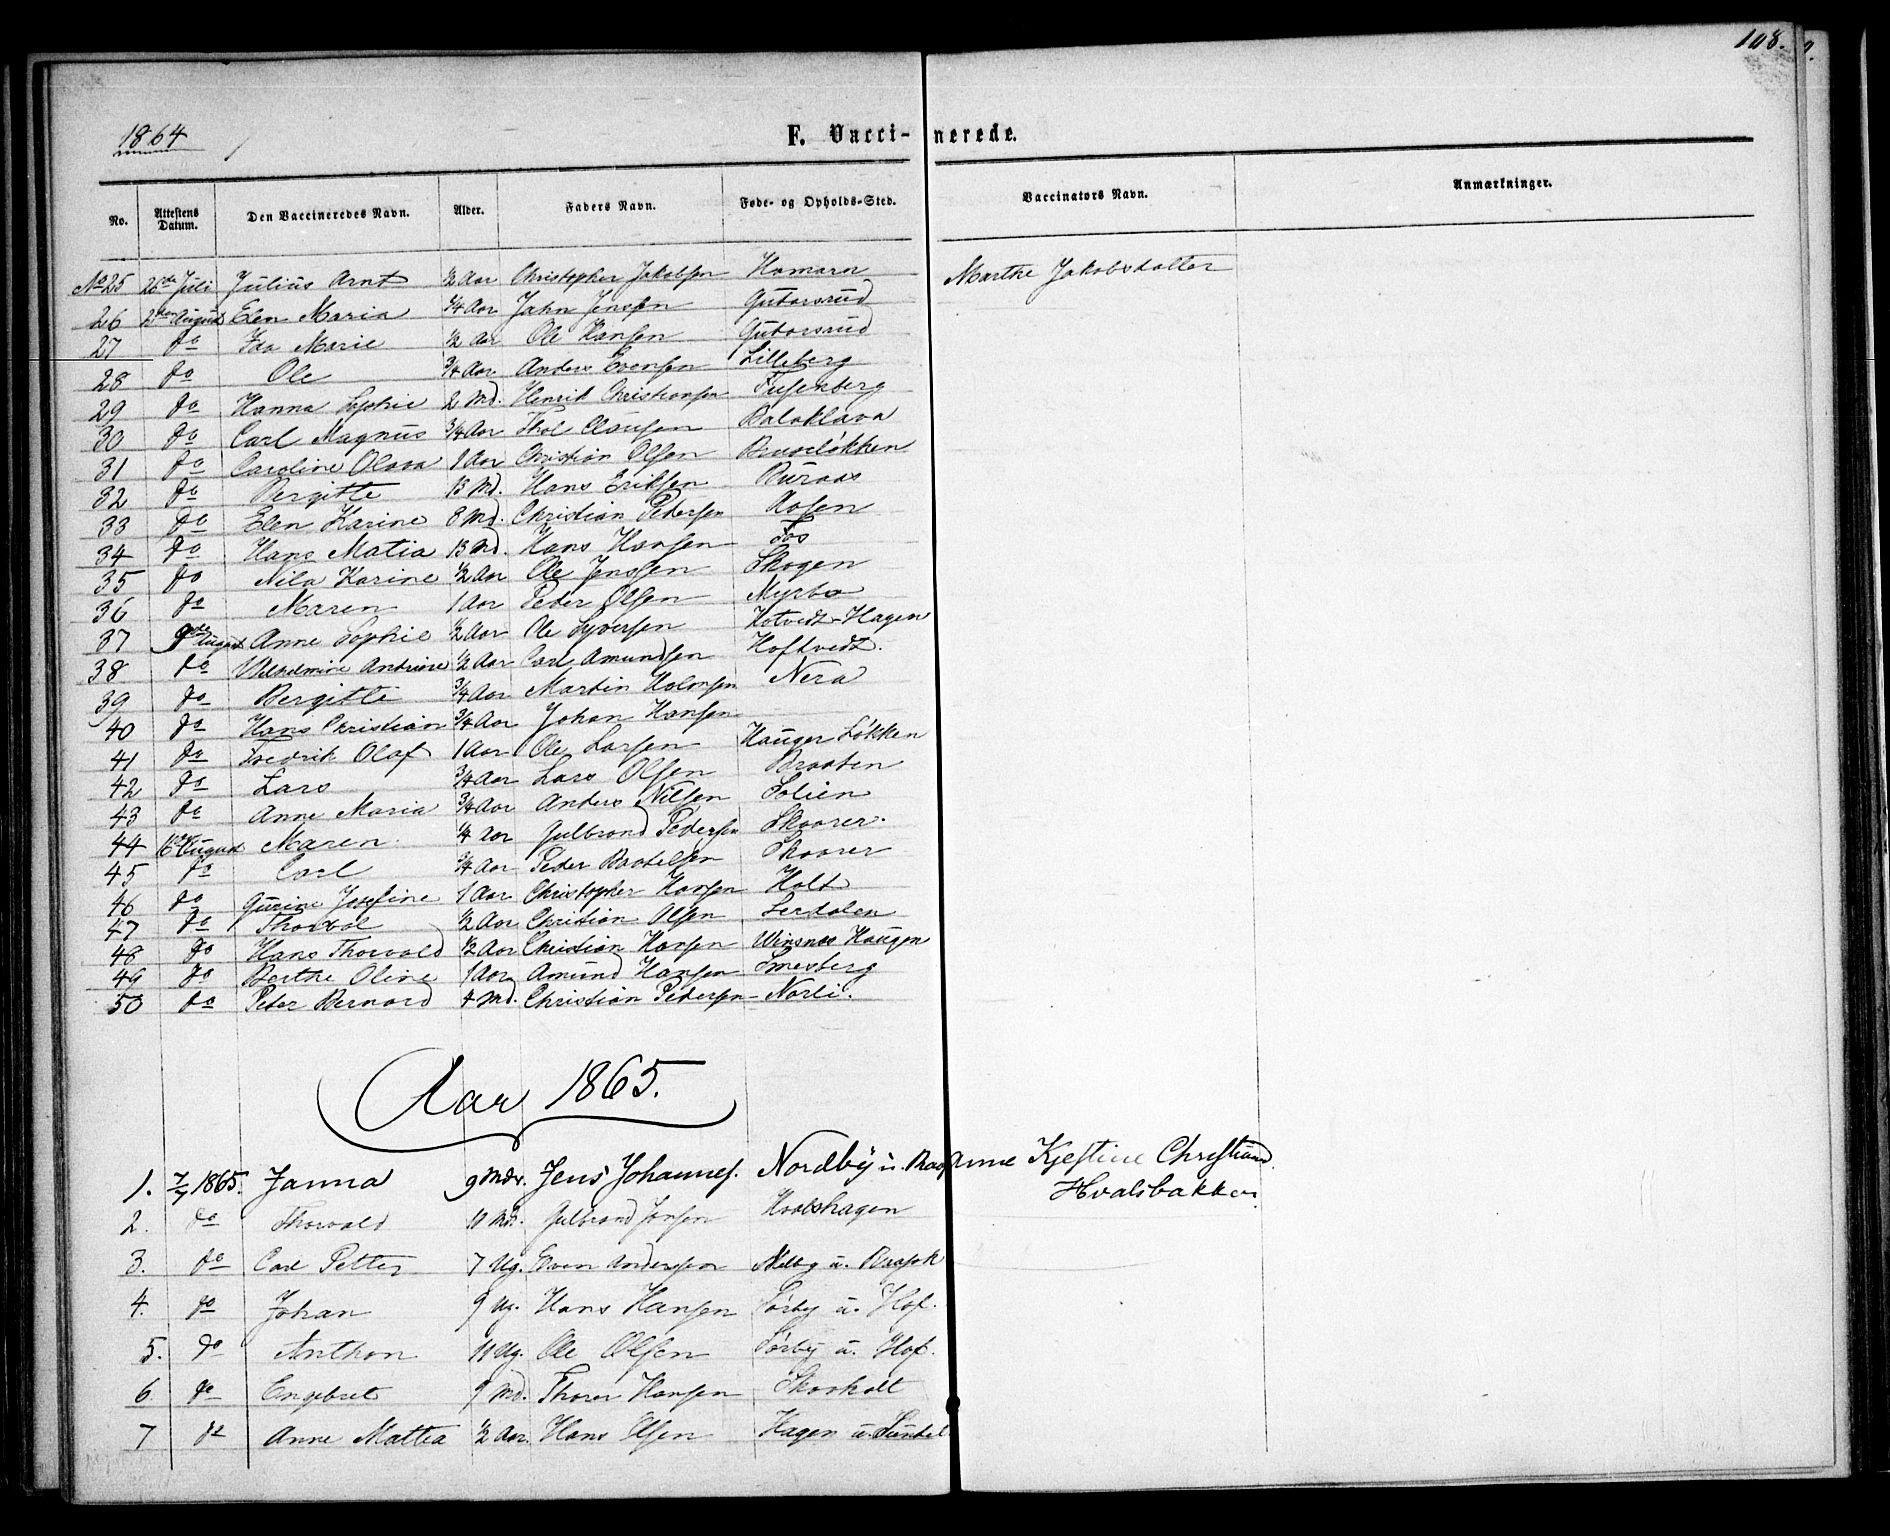 108.
1864
F. Vacci- nerede.
No. Attestens Datum. Den Vaccineredes Navn. Alder. Faders Navn. Føde- og Opholds-Sted. Vaccinators Navn. Anmærkninger.
No 25 26de Juli Julius Arnt ½ Aar Christopher Jakobsen Hamarn Marthe Jakobsdatter
26 2den August Elen Maria ¼ Aar Jahn Jensen Gutorsrud
27 do Ida Marie ½ aar Ole Hansen Gutorsrud
28 do Ole ¾ Aar Anders Evensen Lilleberg
29 do Hanna Sophie 2 Md. Henrik Christiansen Fusenberg
30 do Carl Magnus ¾ Aar Thol Clausen Balaklava
31 do Caroline Olava 1 Aar Christian Olsen Bruveløkken
32 do Bergitte 13 Md. Hans Eriksen Buraas
33 do Elen Karine 8 Md. Christian Pedersen Aasen
34 do Hans Matia 13 Md. Hans Hansen Fos
35 do Nila Karine ½ Aar Ole Jenssen Skogen
36 do Maren 1 Aar Peder Olsen Myrbo
37 9de August Anne Sophie ½ Aar Ole Syversen Hotvedt-Hagen
38 do Wilhelmine Andrine ½ Aar Carl Amundsen Hoftvedt.
39 do Bergitte ¾ Aar Martin Holmsen Nera
40 do Hans Christian ¾ Aar Johan Hansen
41 do Fredrik Olaf 1 Aar Ole Larsen Hauger Løkken
42 do Lars ¾ Aar Lars Olsen Braaten
43 do Anne Maria ¾ Aar Anders Nilsen Solien
44 16de August Maren ¼ aar Gulbrand Pedersen Skaarer.
45 do Carl ¾ Aar Peder Baatelsen Skaarer
46 do Gurine Josefine 1 Aar Christopher Hansen Holt
47 do Thorval ½ Aar Christian Olsen Lerdalen
48 do Hans Thorvald ½ Aar Christian Hansen Winsnes Haugen
49 do Berthe Oline 1 Aar Amund Hansen Smesberg
50 do Peter Bernard 4 Md. Christian Pedersen Norli.
Aar 1865.
1. 7/7 1865. Janna 9 Mdr. Jens Johannes. Nordby u. Anne Kjestine Christians.
Hvalsbakken.
2. do Thorvald 11 Md. Gulbrand Jensen Hvalshagen
3. do Carl Petter 7 Ug. Even Anderssen Melby u. Braark
4. do Johan 9 Ug. Hans Hansen Sørby u. Hof.
5. do Anthon 11 Ug. Ole Olsen Sørby u. Hof.
6 do Engebret 9 Md. Thorer Hansen Skovholt
7 do Anne Mattea ½ Aar. Hans Olsen Hagen u.